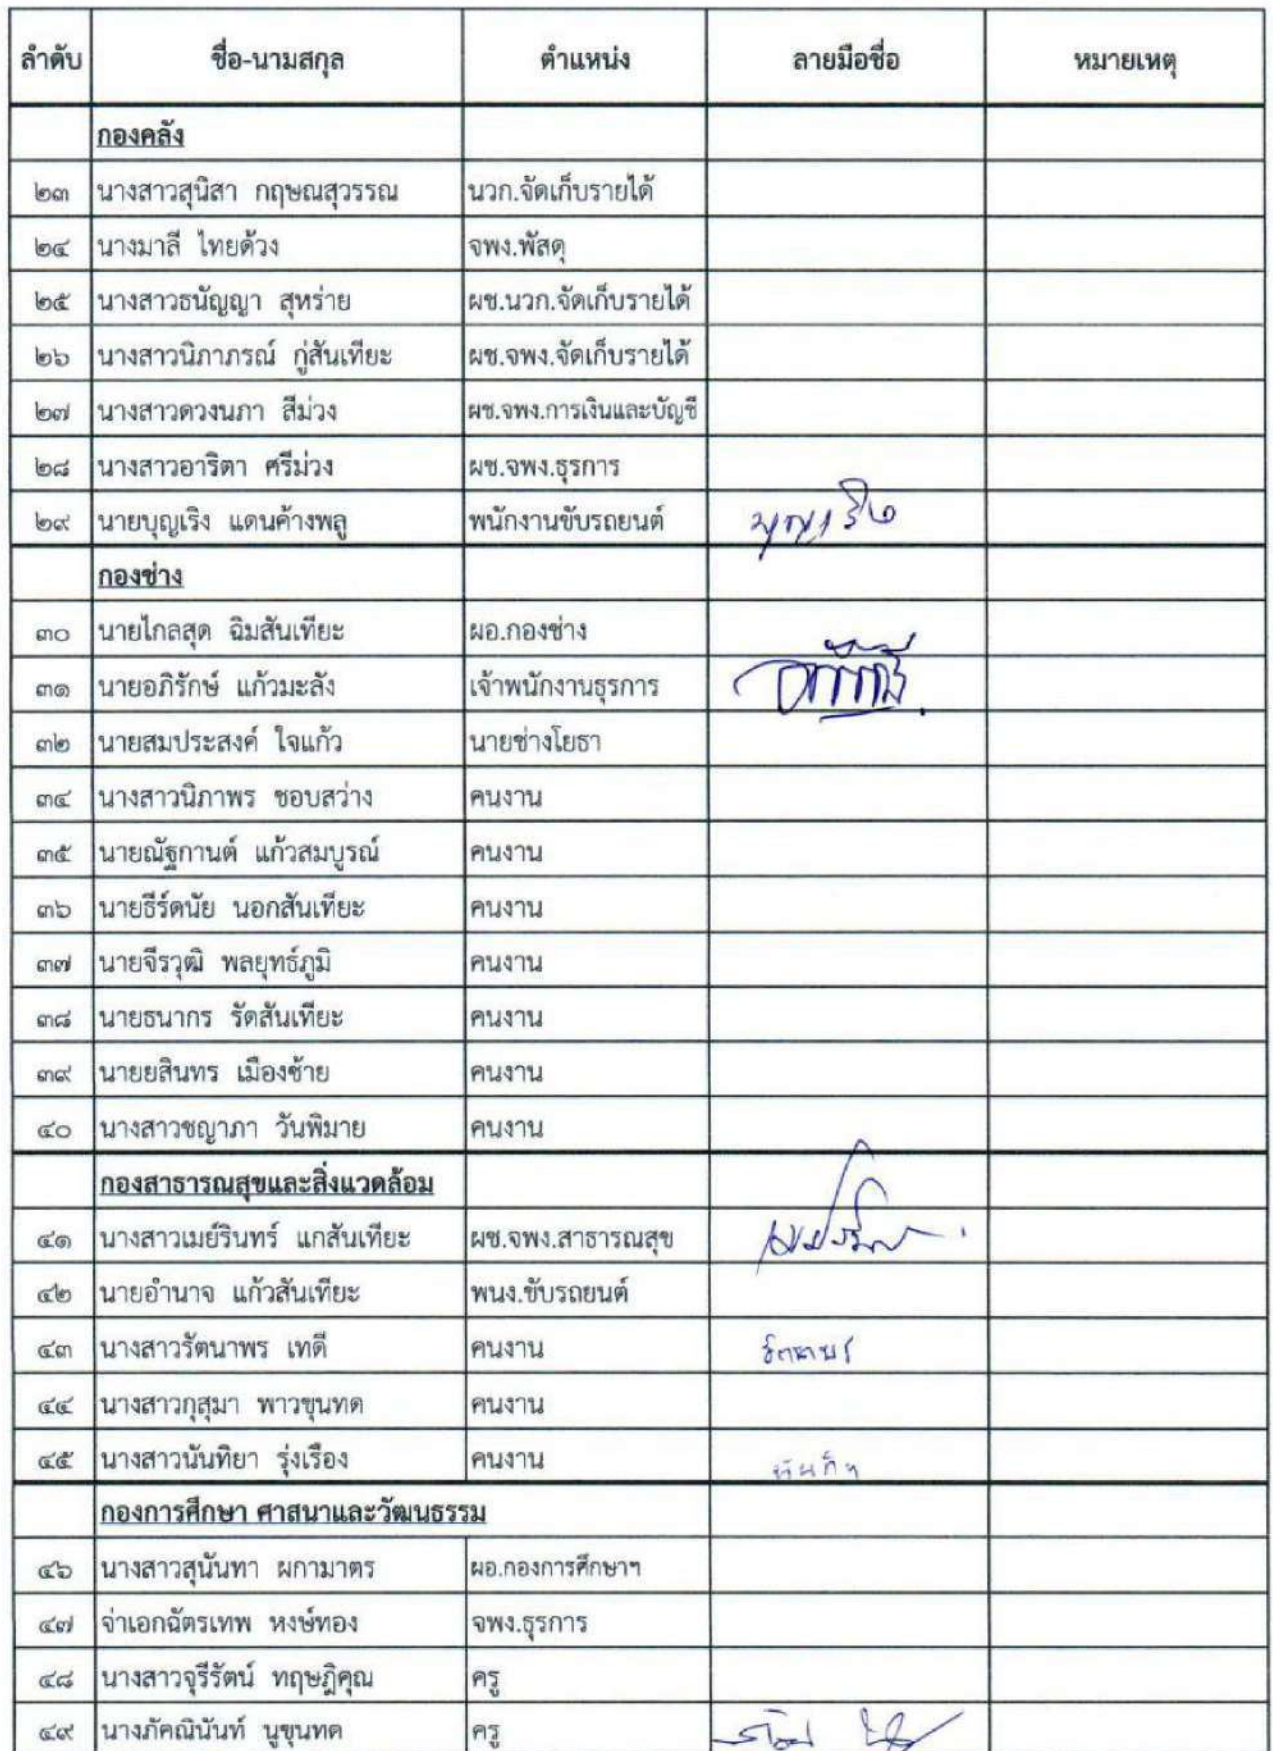 ลำดับ ชื่อ-นามสกุล ตำแหน่ง ลายมือชื่อ หมายเหตุ
กองคลัง
๒๓ นางสาวสุนิสา กฤษณสุวรรณ นวก.จัดเก็บรายได้
๒๔ นางมาลี ไทยด้วง จพง.พัสดุ
๒๕ นางสาวธนัญญา สุหร่าย ผช.นวก.จัดเก็บรายได้
๒๖ นางสาวนิภาภรณ์ กู่สันเทียะ ผช.จพง.จัดเก็บรายได้
๒๗ นางสาวดวงนภา สีม่วง ผช.จพง.การเงินและบัญชี
๒๘ นางสาวอาริตา ศรีม่วง ผช.จพง.ธุรการ
๒๙ นายบุญเริง แดนค้างพลู พนักงานขับรถยนต์ บุญเริง
กองช่าง
๓๐ นายไกลสุด ฉิมสันเทียะ ผอ.กองช่าง
๓๑ นายอภิรักษ์ แก้วมะลัง เจ้าพนักงานธุรการ
๓๒ นายสมประสงค์ ใจแก้ว นายช่างโยธา
๓๔ นางสาวนิภาพร ชอบสว่าง คนงาน
๓๕ นายณัฐกานต์ แก้วสมบูรณ์ คนงาน
๓๖ นายธีร์ดนัย นอกสันเทียะ คนงาน
๓๗ นายจีรวุฒิ พลยุทธ์ภูมิ คนงาน
๓๘ นายธนากร รัดสันเทียะ คนงาน
๓๙ นายยสินทร เมืองซ้าย คนงาน
๔๐ นางสาวชญาภา วันพิมาย คนงาน
กองสาธารณสุขและสิ่งแวดล้อม
๔๑ นางสาวเมย์รินทร์ แกสันเทียะ ผช.จพง.สาธารณสุข
๔๒ นายอำนาจ แก้วสันเทียะ พนง.ขับรถยนต์
๔๓ นางสาวรัตนาพร เทดี คนงาน รัตนาพร
๔๔ นางสาวกุสุมา พาวขุนทด คนงาน
๔๕ นางสาวนันทิยา รุ่งเรือง คนงาน
กองการศึกษา ศาสนาและวัฒนธรรม
๔๖ นางสาวสุนันทา ผกามาตร ผอ.กองการศึกษาฯ
๔๗ จ่าเอกฉัตรเทพ หงษ์ทอง จพง.ธุรการ
๔๘ นางสาวจุรีรัตน์ ทฤษฎิคุณ ครู
๔๙ นางภัคณินันท์ นูขุนทด ครู